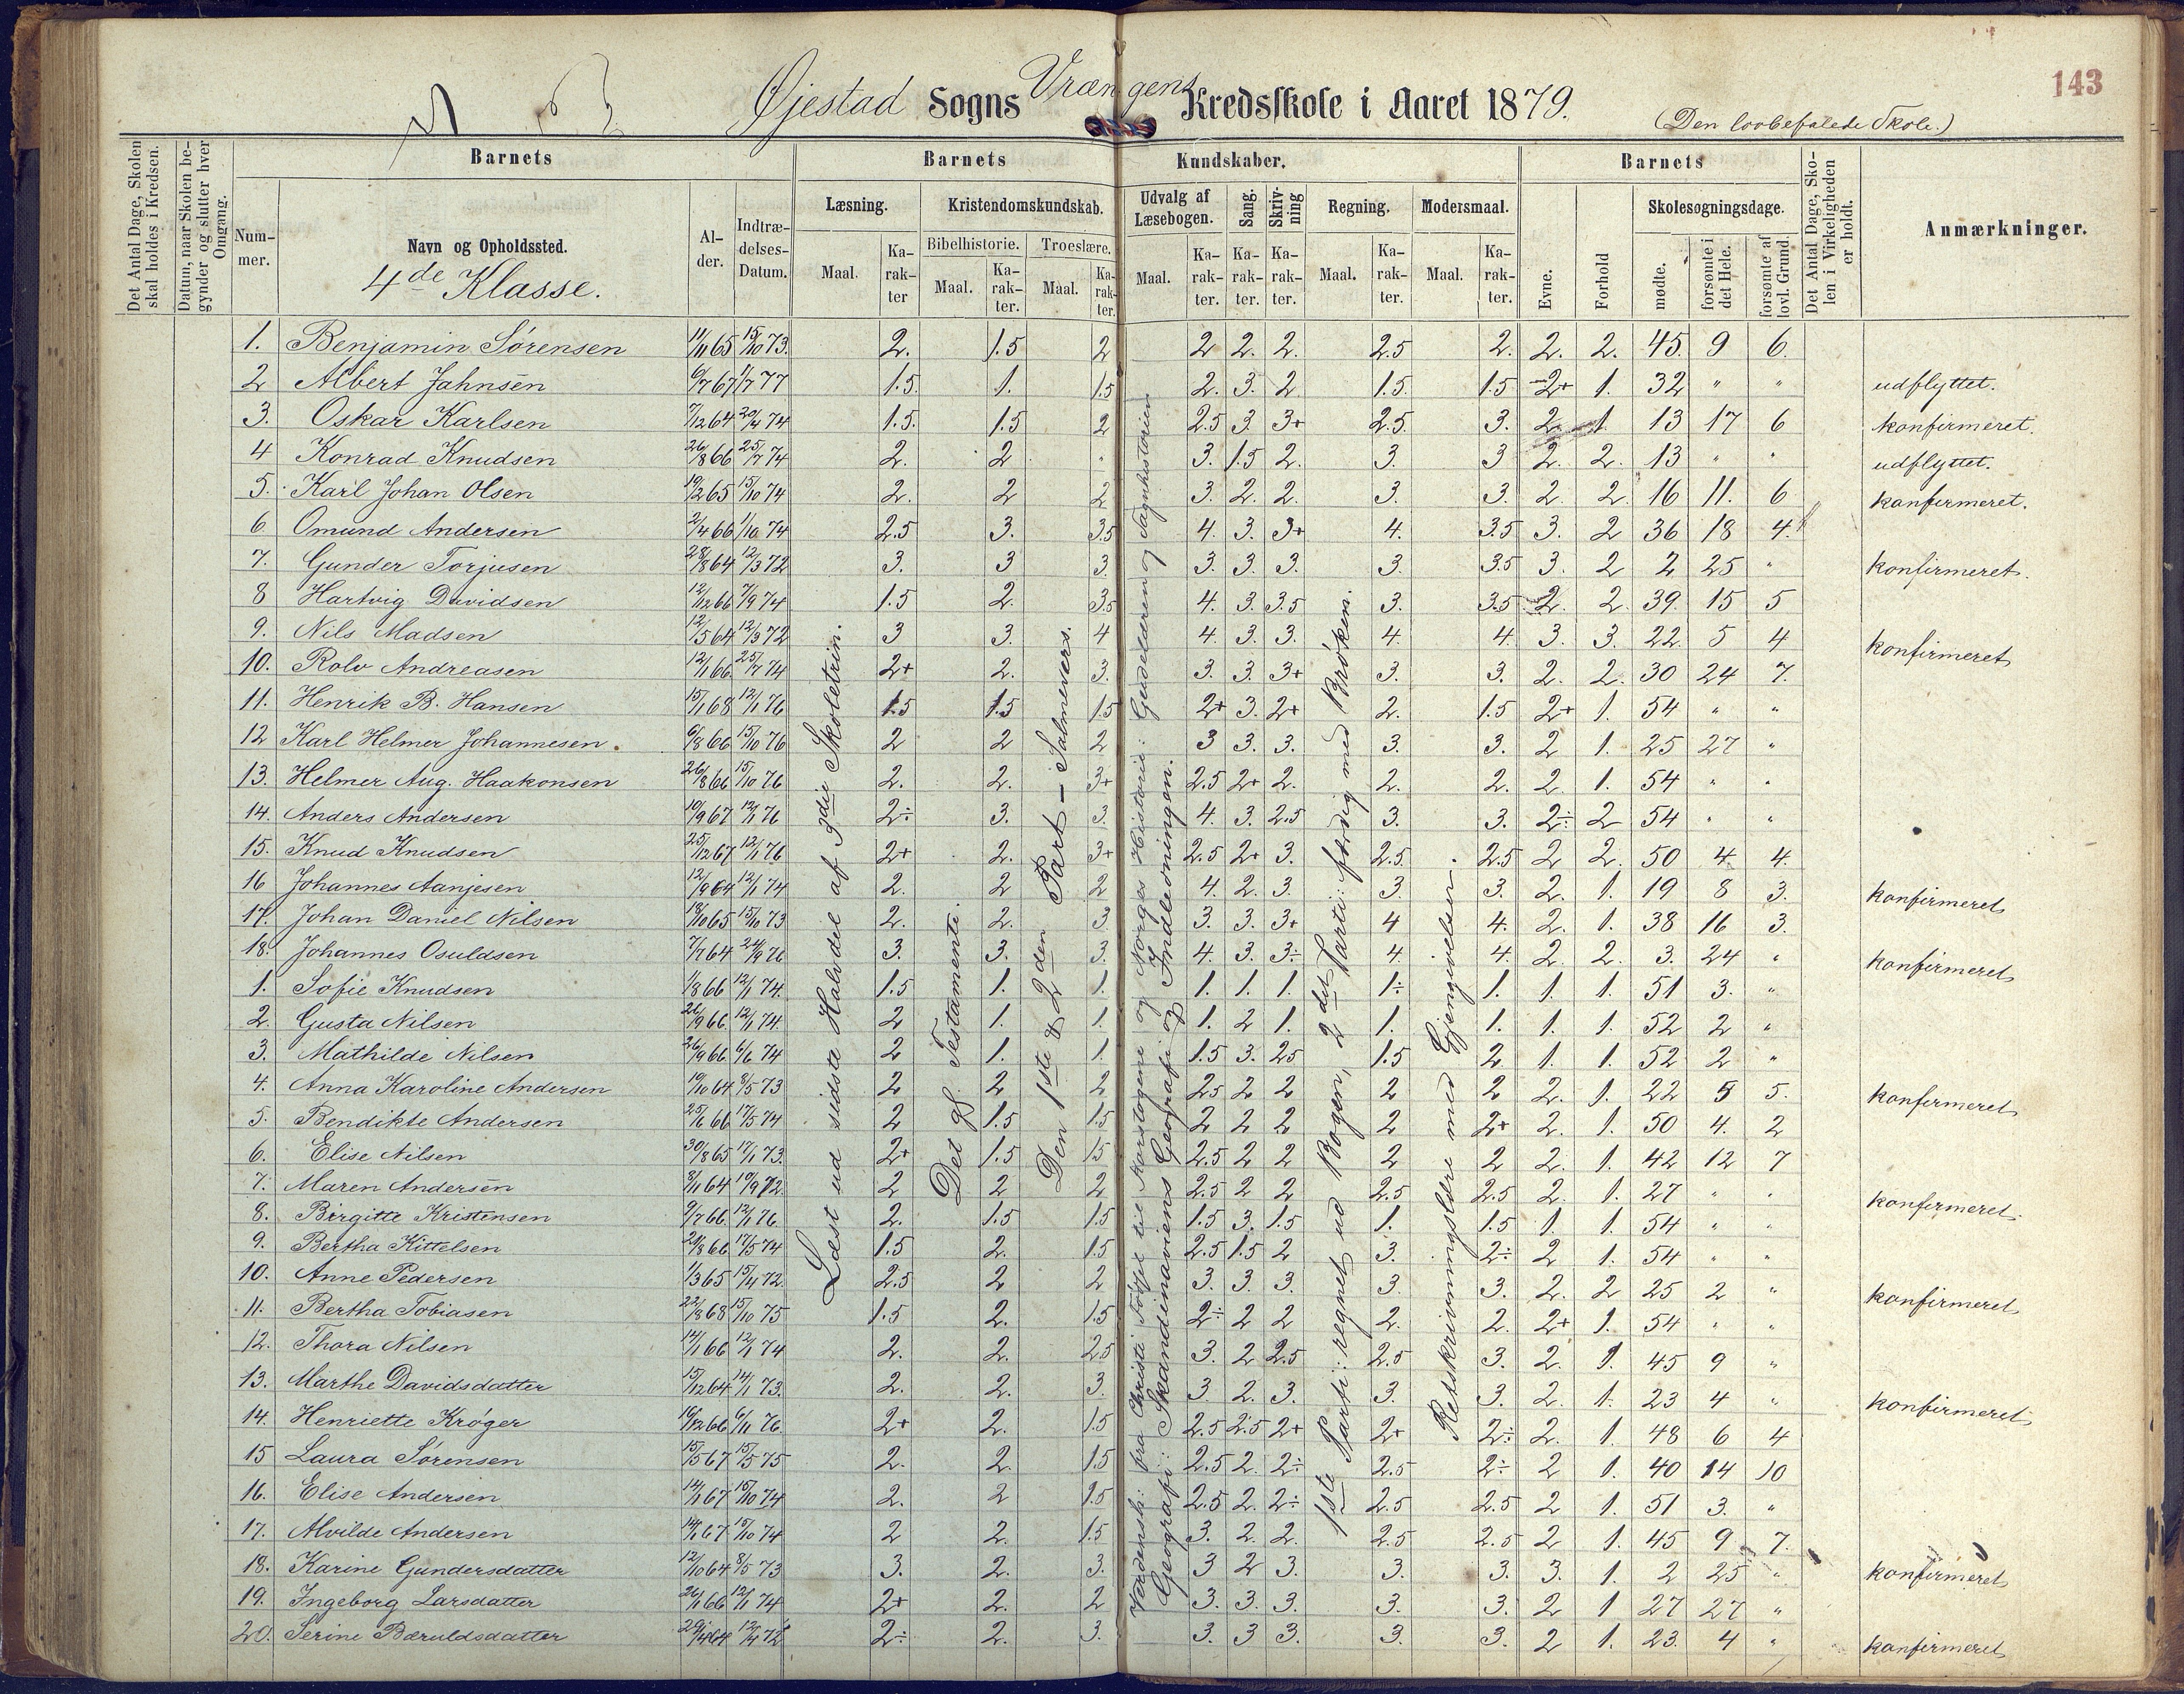 143
Øjestad Sogns Vrængens Kredsskole i Aaret 1879.
(Den lovbefalede Skole.)
Det Antal Dage, Skolen skal holdes i Kredsen.
Datum, naar Skolen begynder og slutter hver Omgang.
Barnets
Barnets Kundskaber.
Barnets
Det Antal Dage, Skolen i Virkeligheden er holdt.
Anmærkninger.
Nummer.
Navn og Opholdssted.
4de Klasse.
Alder.
Indtrædelses-Datum.
Læsning.
Kristendomskundskab.
Bibelhistorie.
Troeslære.
Udvalg af Læsebogen.
Sang.
Skrivning
Regning.
Modersmaal.
Evne.
Forhold
Skolesøgningsdage.
mødte.
forsømte i det Hele.
forsømte af lovl. Grund.
Maal. Karakter Maal. Karakter. Maal. Karakter. Maal. Karakter. Karakter. Karakter. Maal. Karakter. Maal. Karakter.
1. Benjamin Sørensen 11/11 65 15/10 73. 2. 1.5 2 2 2. 2. 2.5 2. 2. 2. 45. 9 6.
2 Albert Jahnsen 6/7 67 1/7 77 1.5. 1. 1.5 2. 3. 2 1.5. 1.5 2+ 1. 32 " " udflyttet.
3. Oskar Karlsen 7/12 64 20/4 74 1.5. 1.5 2 2.5 3. 3+ 2.5. 3. 2. 1. 13 17 6 konfirmeret.
4 Konrad Knudsen 26/8 66 25/7 74 2. 2 " 3. 1.5 2. 3. 3 2. 2. 13 " " udflyttet.
5. Karl Johan Olsen 19/2 65 15/10 74 2. 2 2 3. 2. 2. 3. 3. 2. 2. 16 11. 6 konfirmeret.
6 Omund Andersen 2/4 66 1/10 74 2.5 3. 3.5 4. 3. 3+ 4. 3.5 3. 2 36 18 4.
7. Gunder Torjusen 28/8 64 12/3 72 3. 3 3. 3. 3. 3. 3. 3.5 3. 2 2 25 " konfirmeret.
8 Hartvig Davidsen 12/12 66 7/9 74 1.5 2. 3.5 4. 3. 3.5 3. 3.5 2. 2. 39. 15 5
9. Nils Madsen 12/5 64 12/3 72 3 3. 4 4. 3. 3. 4. 4. 3. 3. 22. 5 4 konfirmeret
10. Rolv Andreasen 12/1 66. 25/7 74 2+ 2. 3. 3. 3. 3+ 3. 3. 2. 2. 30 24 7.
11. Henrik B. Hansen 15/1 68 12/1 76 1.5 1.5 1.5 2+ 3. 2+ 2. 1.5 2+ 1. 54 " "
12 Karl Helmer Johannesen. 6/8 66 15/10 76 2 2 2 3 3. 3. 3. 3. 2 1. 25 27 "
13. Helmer Aug. Haakonsen 26/8 66 15/10 76 2. 2. 3+ 2.5 2+ 2. 2. 2. 2 1. 54 " "
14. Anders Andersen 10/9 67 12/1 76 2÷ 3. 3. 4. 3. 2.5 3. 3. 2÷ 2 54 " "
15. Knud Knudsen 25/12 67 12/1 76 2+ 2. 3+ 2.5 2+ 3. 2.5. 2.5 2 2. 50 4. 4.
16 Johannes Aanjesen 12/9 64 12/1 74 2. 2 2 4. 2. 3. 3. 3. 2. 1. 19 8 3. konfirmeret
17. Johan Daniel Nilsen 18/10 65 15/10 73 2. 2. 3. 3. 3. 3+ 4 4. 2. 1. 38 16 3.
18. Johannes Osuldsen 7/7 64 24/9 76 3. 3. 3. 4. 3. 3÷ 4. 4. 2. 2. 3. 24 " konfirmeret
1. Sofie Knudsen 1/8 66 12/1 74. 1.5 1. 1. 1. 1. 1. 1÷ 1. 1. 1. 51 3. "
2. Gusta Nilsen 26/9 66. 12/1 74. 2 1. 1. 1. 2 1. 1. 1. 1. 1. 52 2 "
3. Mathilde Nilsen 26/9 66 6/6 74 2 1. 1. 1.5 3. 2.5 1.5 2. 1. 1. 52 2 "
4. Anna Karoline Andersen 19/10 64 8/5 73 2 2 2 2.5 2 2 2 2 2. 1. 22 5 5. konfirmeret
5. Bendikte Andersen 25/6 66 17/5 74 2 1.5 1.5 2 2 2 2 2+ 2. 1. 50 4. 2
6. Elise Nilsen 30/8 65 17/1 73. 2+ 1.5 1.5 2.5 2 2 2 2 2. 1. 42 12 7
7. Maren Andersen 8/11 64 10/9 72. 2 2 2 2.5 2 2 2.5 2.5 2. 1. 27 " " konfirmeret.
8. Birgitte Kristensen 9/7 66. 12/1 76. 2. 1.5 1.5 1.5 3. 1.5 1. 1.5 1. 1. 54 " "
9. Bertha Kittelsen 21/8 66 17/5 74 1.5 2. 1.5 2.5 1.5 2 3. 2÷ 2 1. 54 " "
10. Anne Pedersen 1/3 65 15/4 72. 2.5 2 2 3. 3. 3. 3. 3. 2. 2 25 2 " konfirmeret
11. Bertha Tobiasen 22/8 68 15/10 75 1.5 2. 1.5 2÷ 2 2 2. 2. 2+ 1. 54 " "
12. Thora Nilsen 14/1 66 12/1 74 2. 2. 2.5 3. 2 2.5 2.5 3. 2. 1. 45 9 "
13. Marthe Davidsdatter 15/12 64 14/1 73. 2. 2. 3. 3. 2. 3. 3. 3. 2. 1. 23 4 " konfirmeret
14. Henriette Krøger 16/12 66 6/11 76. 2+ 2. 1.5 2.5 2.5 2+ 2+ 2÷ 2. 1. 48 6 4
15 Laura Sørensen 15/5 67 15/5 75 2. 2. 1.5 2.5 2. 2÷ 2.5 2÷ 2 1. 40 14 10
16. Elise Andersen 14/1 67 15/10 74 2. 2 1.5 2.5 2. 2÷ 2.5 2.5 2 1. 51 3. "
17. Alvilde Andersen 14/1 67 15/10 74 2 2. 1.5 3. 2. 2. 2.5 2.5 2 1. 45 9 7.
18. Karine Gundersdatter 12/10 64 8/5 73 3. 2. 3. 3 2 3. 3. 3. 3. 1. 2 25 " konfirmeret
19. Ingeborg Larsdatter 26/1 66 12/1 74 2+ 2. 2 3. 3. 3. 3. 3. 2 1 27 27 "
20. Serine Bæruldsdatter 29/4 64 12/4 72 2÷ 2. 3. 3. 3 3. 3. 3. 2 1. 23. 4 " konfirmeret
Læst ud sidste Halvdel af 3die Skoletrin.
Det gl. Testamente.
Den 1ste & 2den Part – Salmevers.
Verdensh: fra Christi Fødsel til Korstogene og Norges Historie: Gudelæren og Sagnhistorien
Geografi: Skandinaviens Geografi og Indledningen.
1ste Parti: regnet ud Bogen, 2det Parti: færdig med Brøken.
Retskrivningslære med Gjengivelser.